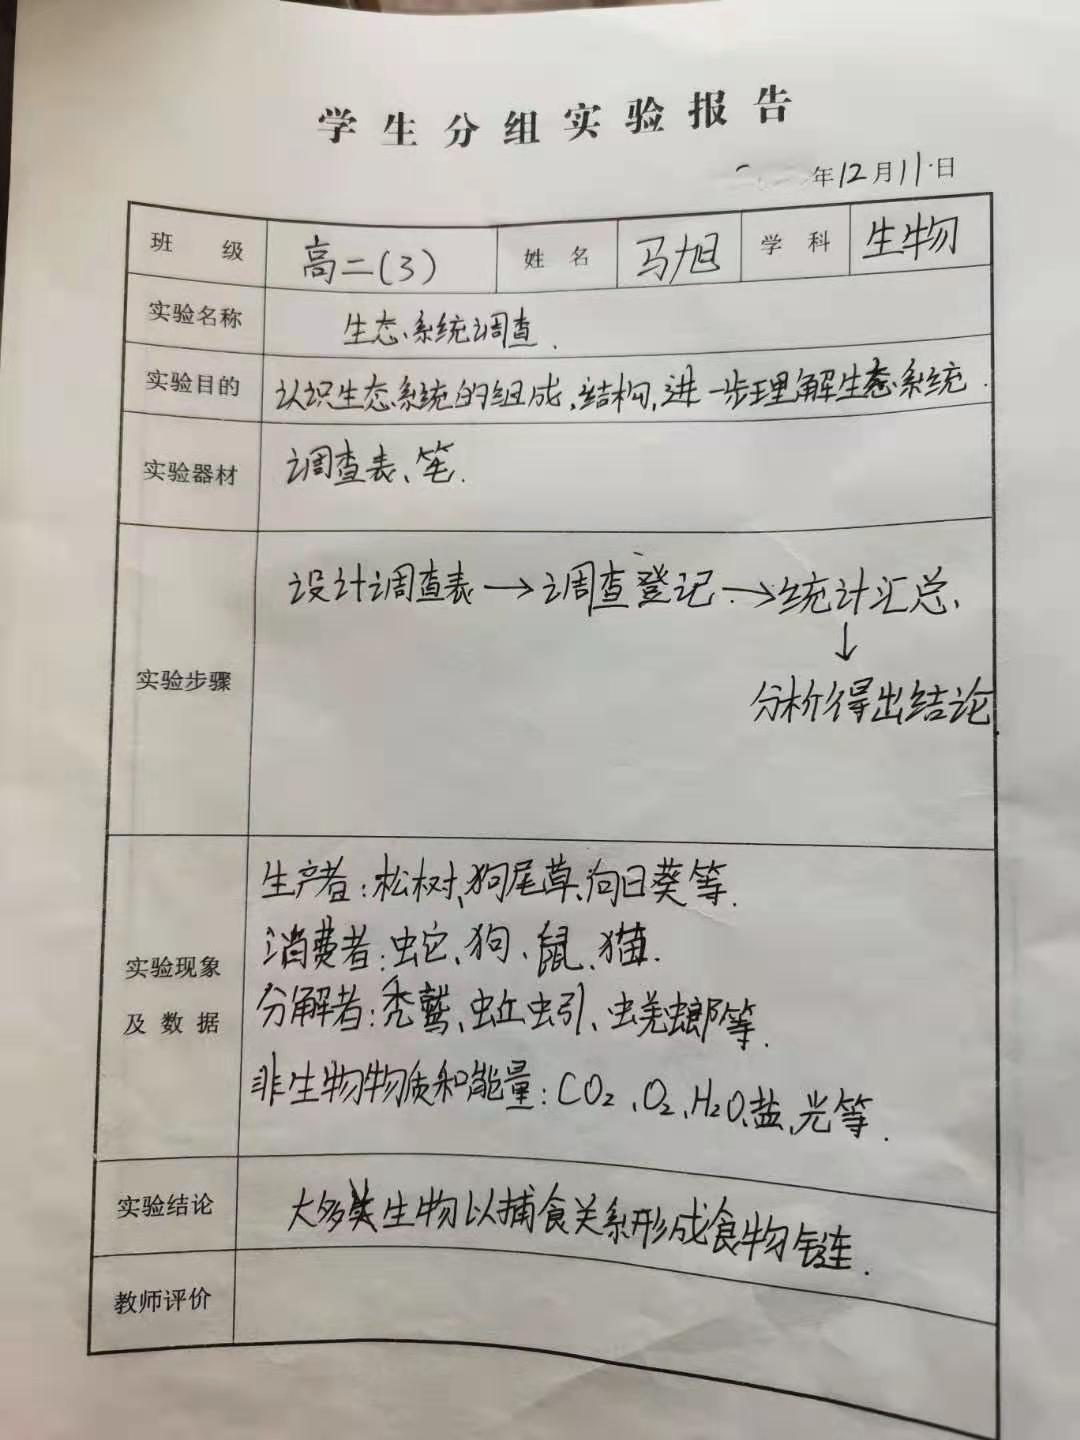 学生分组实验报告
年12月11日
班级 高二(3) 姓名 马旭 学科 生物
实验名称 生态系统调查.
实验目的 认识生态系统的组成、结构,进一步理解生态系统.
实验器材 调查表、笔.
设计调查表→调查登记→统计汇总、
↓
实验步骤
分析得出结论
生产者:松树、狗尾草、向日葵等.
消费者:蛇、狗、鼠、猫.
实验现象
分解者:秃鹫、蚯蚓、蜣螂等.
及数据
非生物物质和能量:CO₂、O₂、H₂O、盐、光等.
实验结论 大多类生物以捕食关系形成食物链.
教师评价